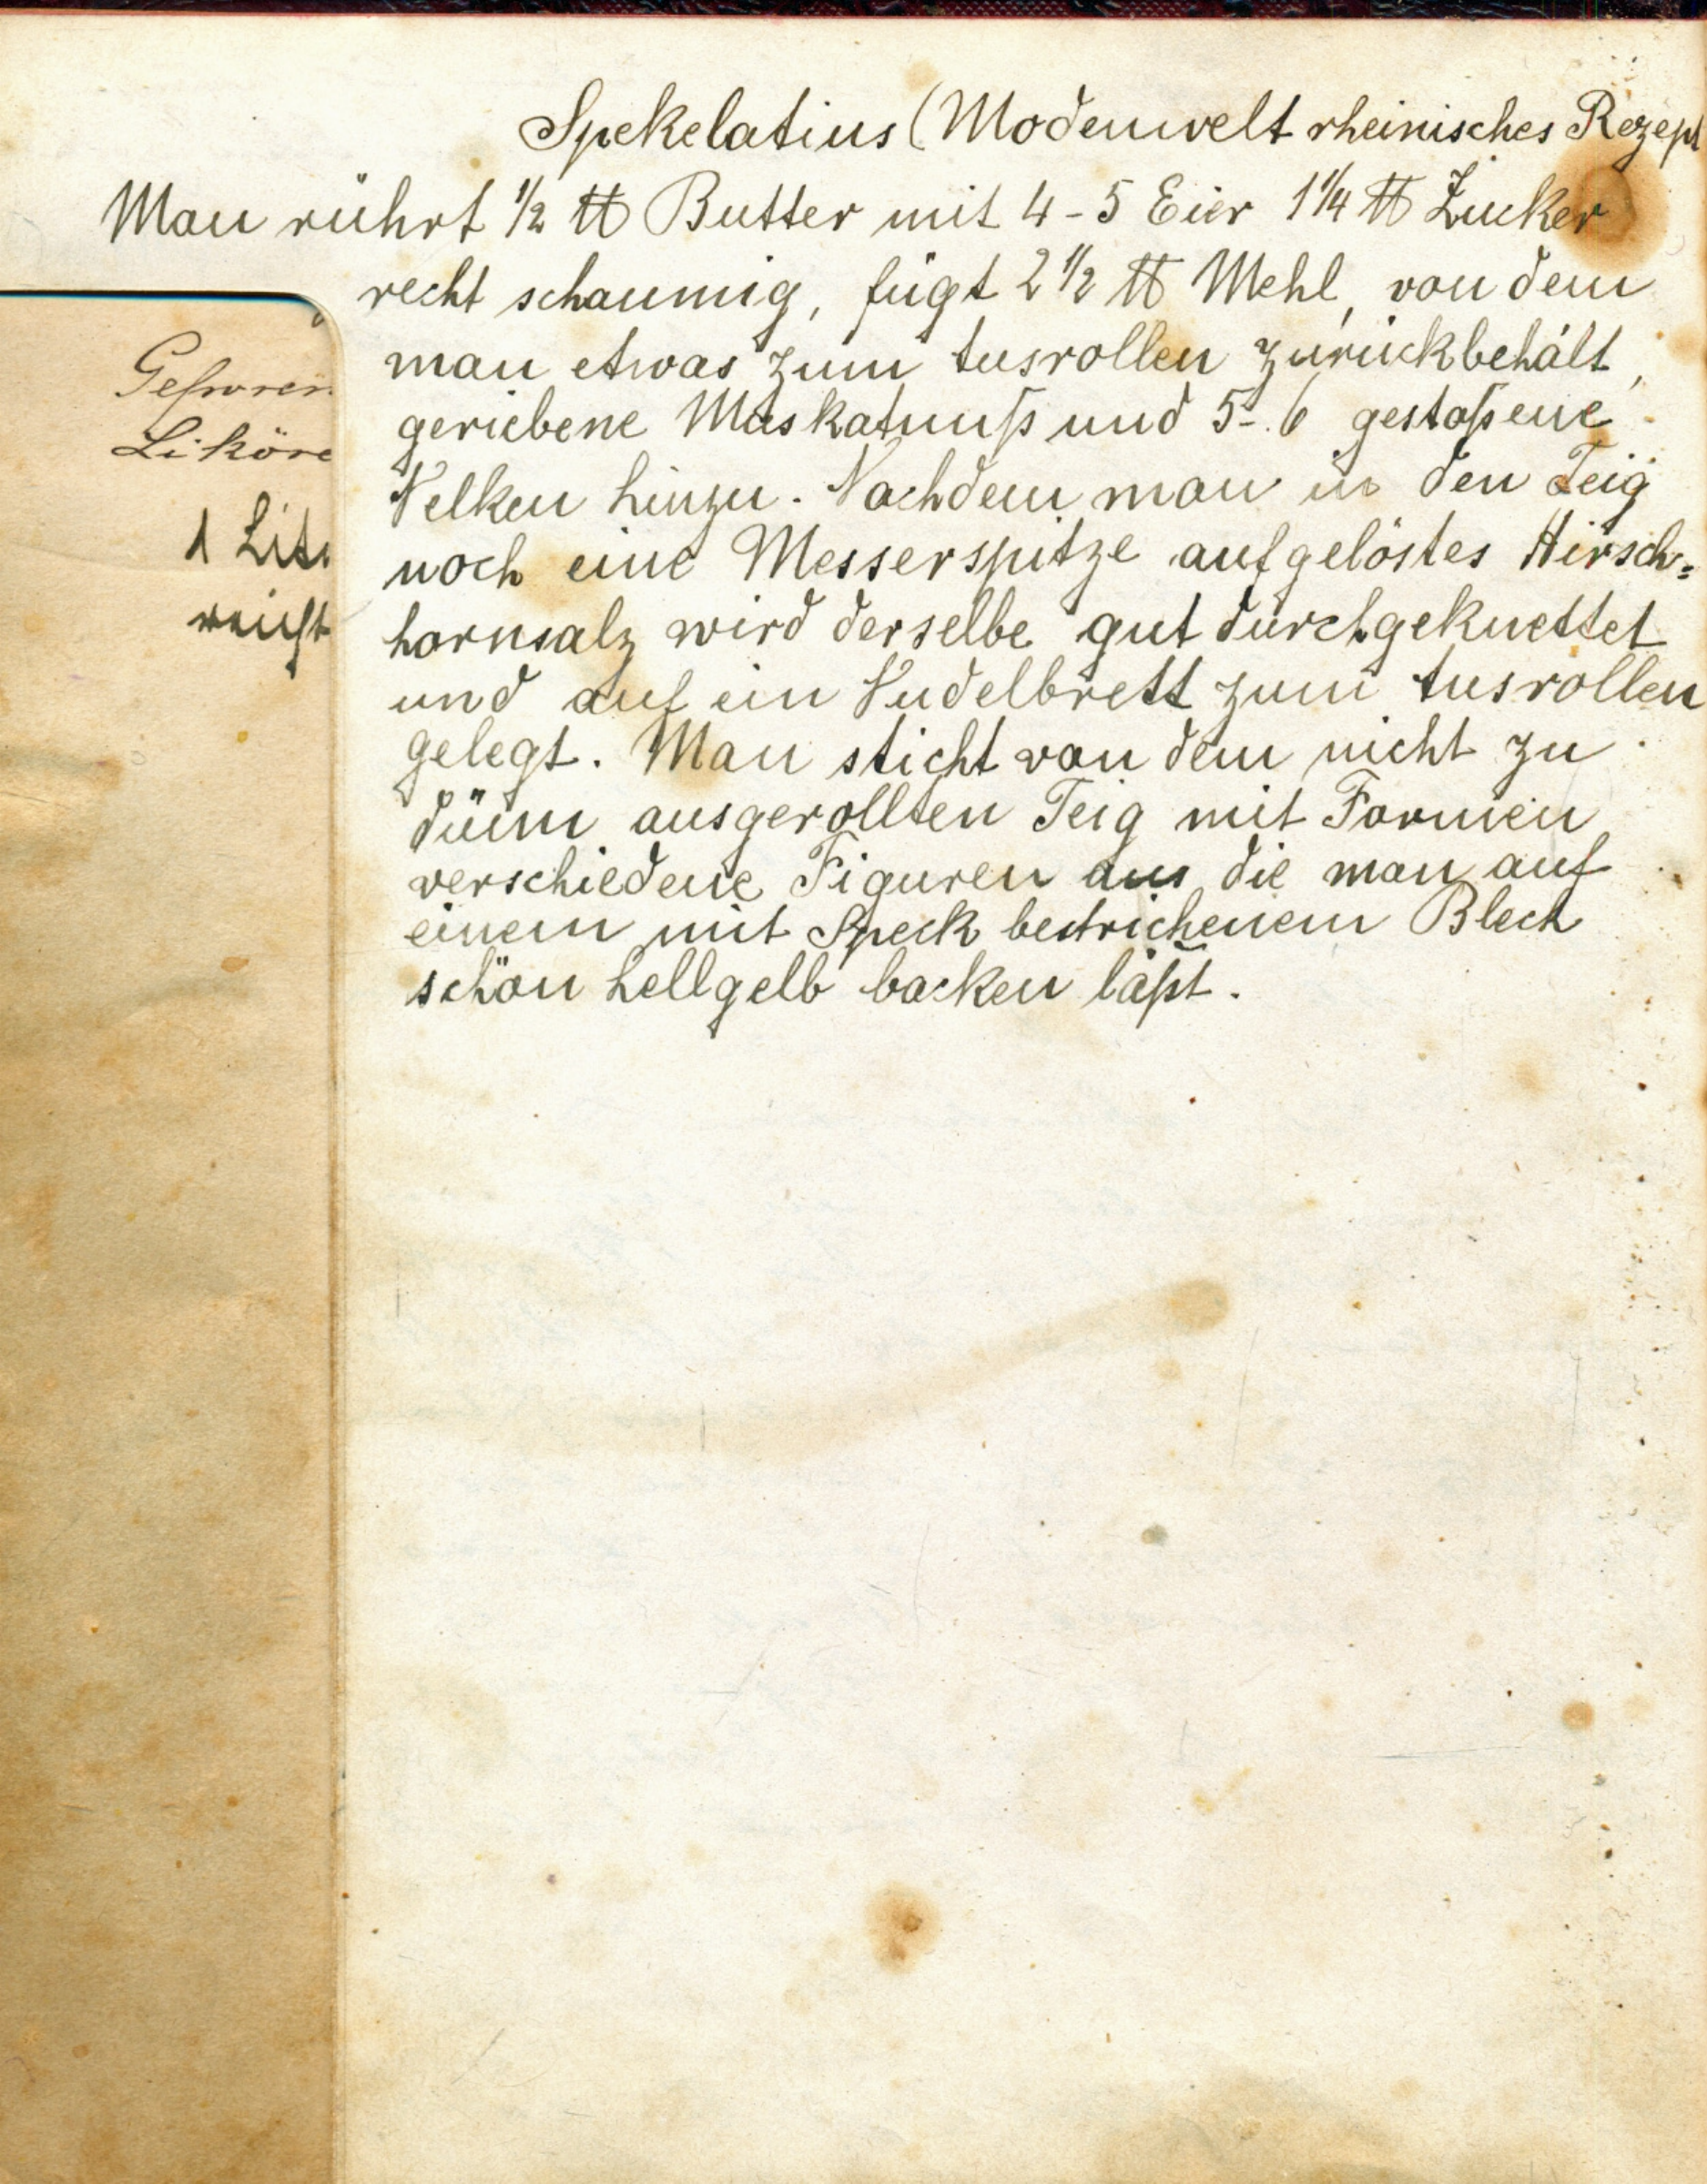 Spekelatius (Modenwelt rheinisches Rezept
Man rührt ½ ℔ Butter mit 4-5 Eier 1¼ ℔ Zucker
recht schaumig, fügt 2½ ℔ Mehl, von dem
man etwas zum Ausrollen zurückbehält,
geriebene Muskatnuß und 5-6 gestoßene
Nelken hinzu. Nachdem man in den Teig
noch eine Messerspitze aufgelöstes Hirsch=
hornsalz wird derselbe gut durchgeknettet
und auf ein Nudelbrett zum Ausrollen
gelegt. Man sticht von dem nicht zu
dünn ausgerollten Teig mit Formen
verschiedene Figuren aus die man auf
einem mit Speck bestrichenem Blech
schön hellgelb backen läßt.
Liköre
1 Lite